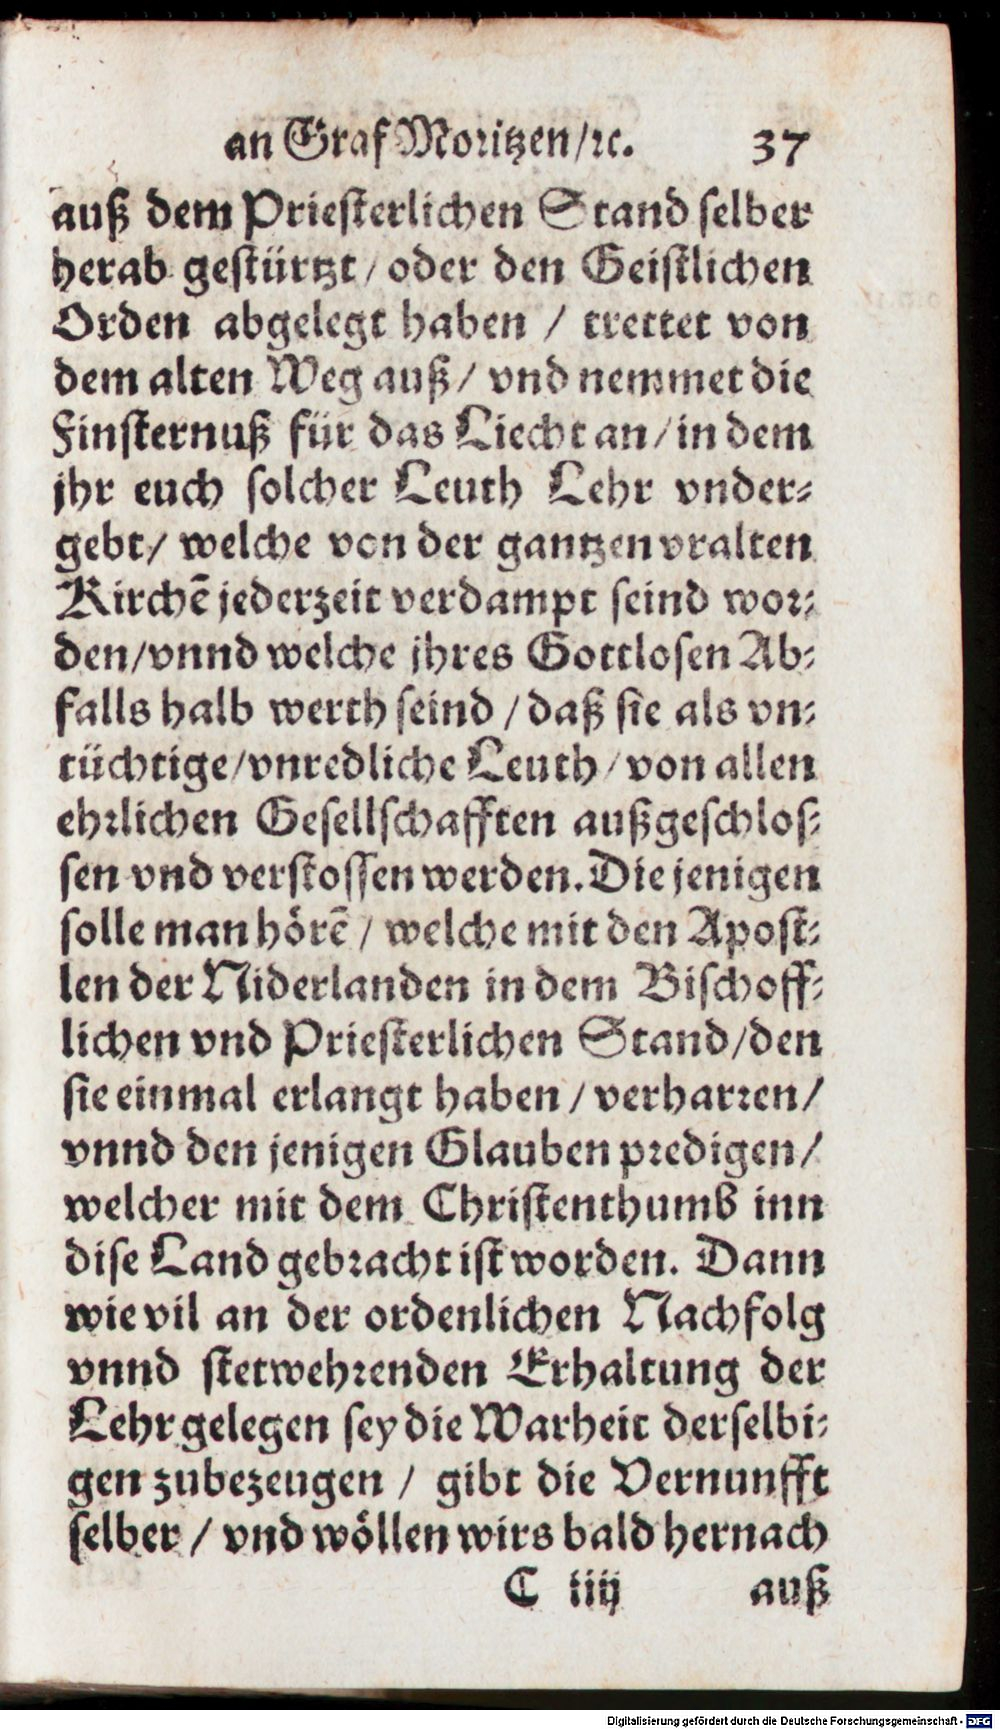 an Graf Moritzen/ꝛc. 37
auß dem Priesterlichen Stand selber
herab gestürtzt/oder den Geistlichen
Orden abgelegt haben / trettet von
dem alten Weg auß/ vnd nemmet die
Finsternuß für das Liecht an/in dem
jhr euch solcher Leuth Lehr vnder-
gebt/ welche von der gantzen vralten
Kirchē jederzeit verdampt seind wor-
den/vnnd welche jhres Gottlosen Ab-
falls halb werth seind / daß sie als vn-
tüchtige/vnredliche Leuth/von allen
ehrlichen Gesellschafften außgeschlos-
sen vnd verstossen werden. Die jenigen
solle man hörē / welche mit den Apost-
len der Niderlanden in dem Bischoff-
lichen vnd Priesterlichen Stand/den
sie einmal erlangt haben / verharren/
vnnd den jenigen Glauben predigen/
welcher mit dem Christenthumb inn
dise Land gebracht ist worden. Dann
wie vil an der ordenlichen Nachfolg
vnnd stetwehrenden Erhaltung der
Lehr gelegen sey die Warheit derselbi-
gen zubezeugen / gibt die Vernunfft
selber / vnd wöllen wirs bald hernach
C iiij auß
Digitalisierung gefördert durch die Deutsche Forschungsgemeinschaft - DFG